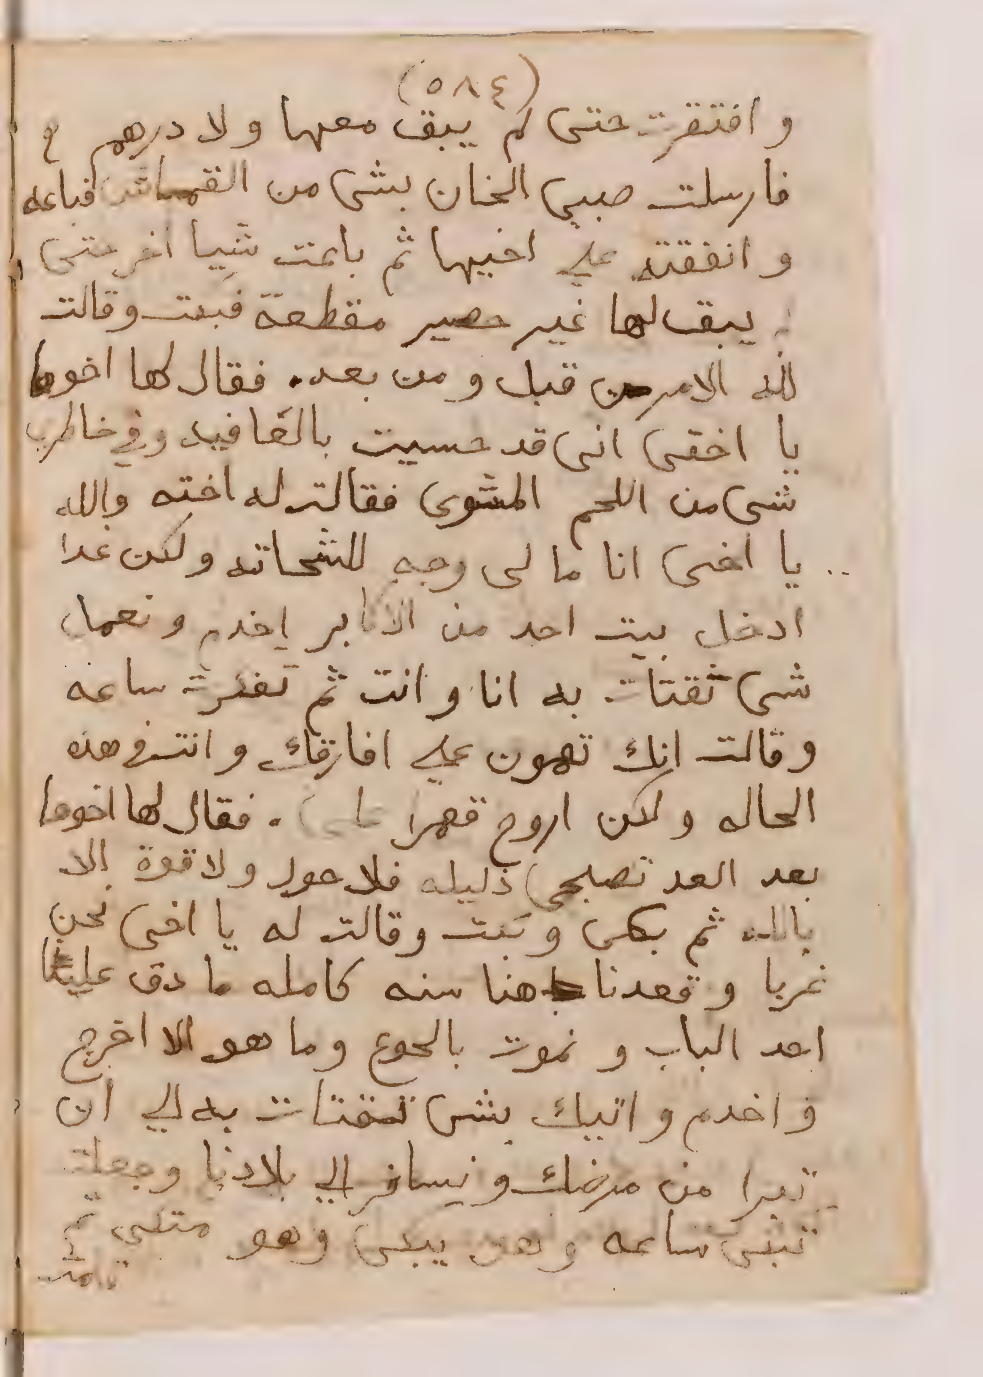 (٥٨٤)
و افتقرت حتى لم يبق معها ولا درهم
فارسلت صبي الخان بشى من القماش فباعه
و انفقته علي اخيها ثم باعت شيا اخر حتى
يبق لها غير حصير مقطعة فبكت وقالت
لله الامر من قبل و من بعد. فقال لها اخوها
يا اختى انى قد حسيت بالعافيه وفي خاطري
شى من اللحم المشوى فقالت له اخته والله
يا اخى انا ما لى وجه للشحاته ولكن غدا
ادخل بيت احد من الاكابر اخدم و نعمل
شى نقتات به انا و انت ثم تفكرت ساعه
وقالت انك تهون علي افارقك وانت في هذه
الحاله ولكن اروح قهرا على . فقال لها اخوها
بعد العد تصبحى ذليله فلا حول ولا قوة الا
بالله ثم بكى و بكت وقالت له يا اخى نحن
غربا و قعدنا هنا سنه كامله ما دق علينا
احد الباب و نموت بالجوع وما هو الا اخرج
و اخدم و اتيك بشى نقتات به الي ان
تبرا من مرضك و نسافر الي بلادنا وجعلت
تبكى ساعه وهو يبكى وهو متكي ثم